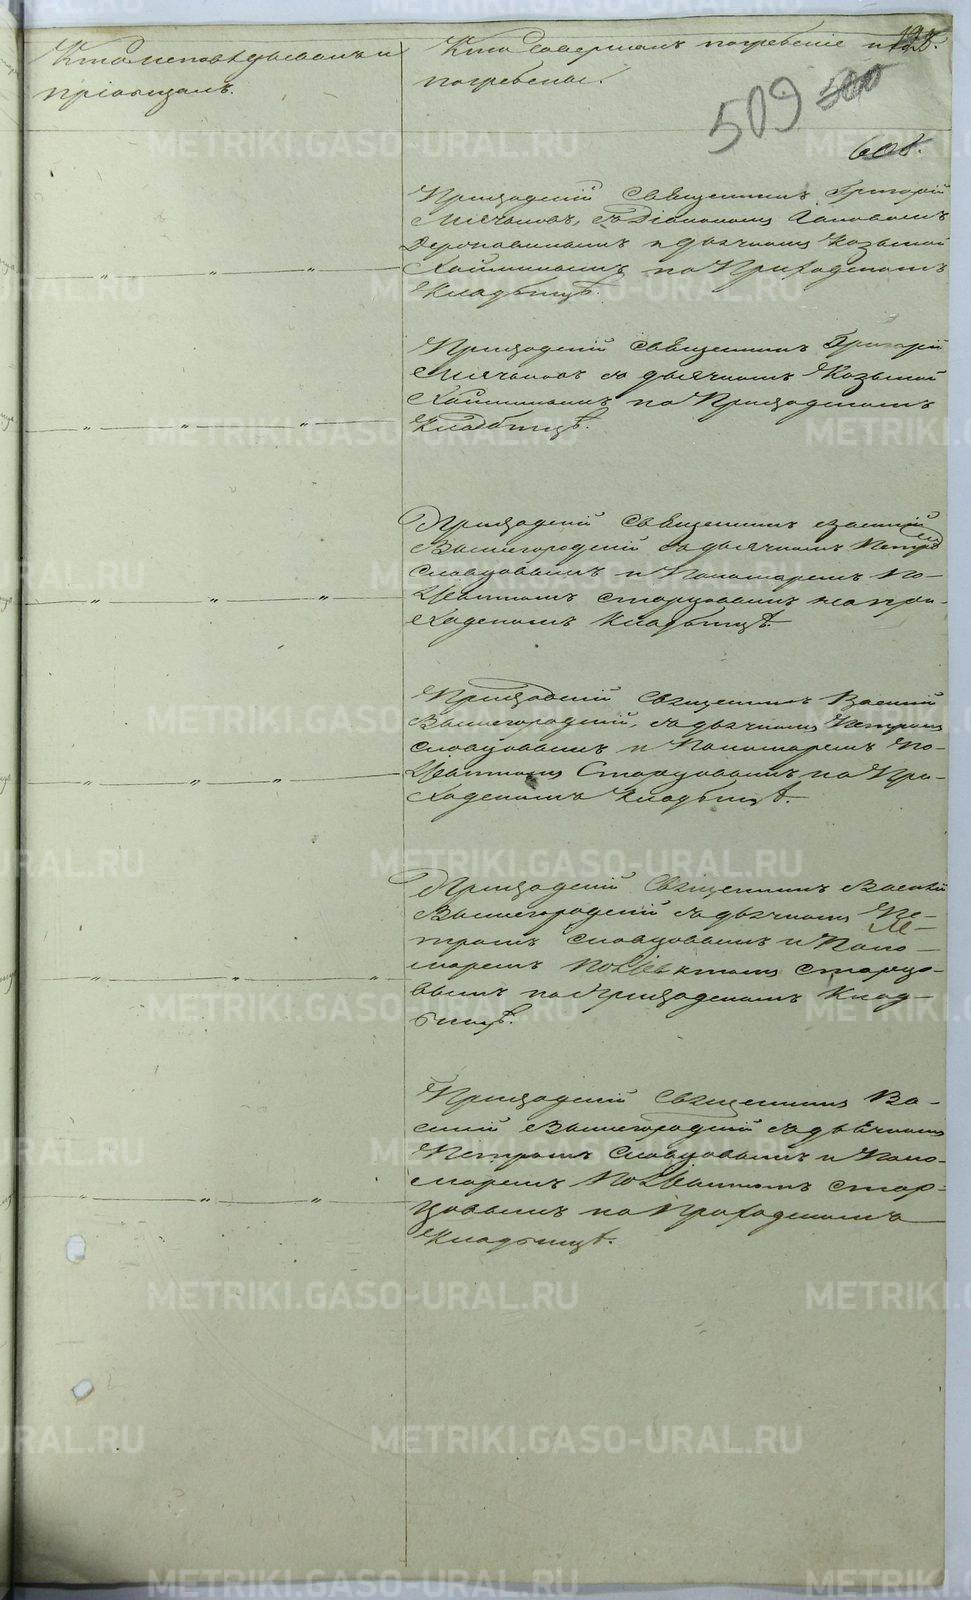 Кто исповѣдывалъ и
пріобщалъ.
Кто совершалъ погребеніе и гдѣ
погребены.
128.
509 500
608.
Приходскій священникъ Григорій
съ Діакономъ
и дьячкомъ Козьмою
на Приходскомъ
Кладбищѣ.
Приходскій священникъ Григорій
съ дьячкомъ Козьмою
на Приходскомъ
Кладбищѣ.
Приходскій священникъ Василій
Вышегородскій съ дьячкомъ Петромъ
Словцовымъ и Пономаремъ По-
ліевктомъ Старцовымъ на при-
ходскомъ кладбищѣ.
Приходскій священникъ Василій
Вышегородскій, съ дьячкомъ Петромъ
Словцовымъ и Пономаремъ По-
ліевктомъ Старцовымъ на При-
ходскомъ кладбищѣ.
Приходскій священникъ Василій
Вышегородскій съ дьячкомъ Пе-
тромъ Словцовымъ и Поно-
маремъ Поліевктомъ Старцо-
вымъ на Приходскомъ Клад-
бищѣ.
Приходскій священникъ Ва-
силій Вышегородскій съ дьячкомъ
Петромъ Словцовымъ и Поно-
маремъ Поліевктомъ Стар-
цовымъ на Приходскомъ
Кладбищѣ.
METRIKI.GASO-URAL.RU